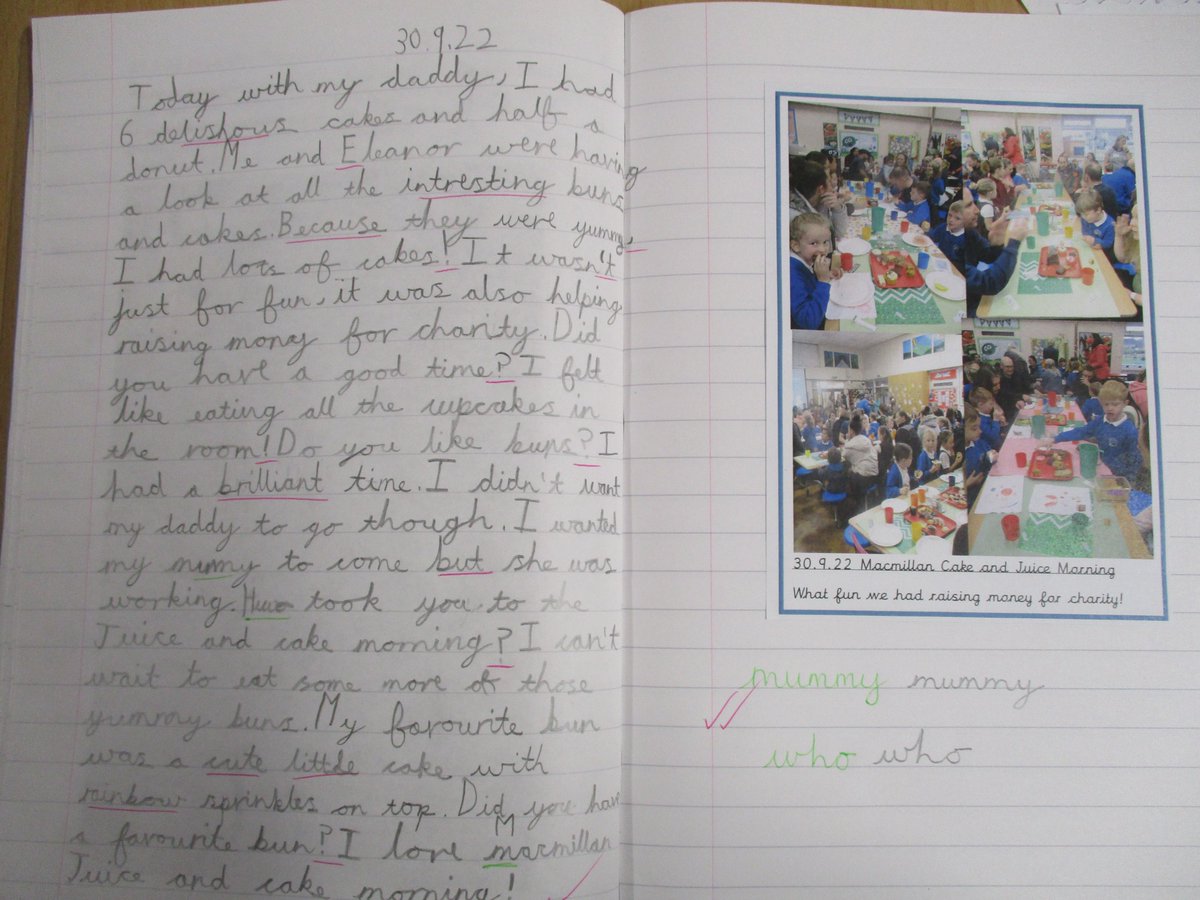 30.9.22
Today with my daddy, I had
6 delishous cakes and half a
donut. Me and Eleanor were having
a look at all the intresting buns
and cakes. Because they were yummy,
I had lots of cakes! It wasn't
just for fun, it was also helping
raising money for charity. Did
you have a good time? I felt
like eating all the cupcakes in
the room! Do you like buns? I
had a brilliant time. I didn't want
my daddy to go though. I wanted
my mummy to come but she was
working. took you to the
Juice and cake morning? I can't
wait to eat some more of those
yummy buns. My favourite bun
was a cute little cake with
rainbow sprinkles on top. Did you have
a favourite bun? I love macmillan
M
Juice and cake morning!
30.9.22 Macmillan Cake and Juice Morning
What fun we had raising money for charity!
mummy mummy
who who